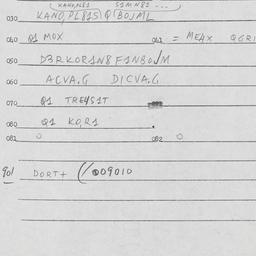 KANO,PL81 S1MN81 ...
030 KANO,PL81S Q BOJML
040 Q1 MOX 041 = MEAX QGRI
050 D3RKOR1N8 F1NBO/M
060 ACVA.G DICVA.G
070 Q1 TREYS1T
080 Q1 KO,R1 .
081 0 082 0
901 DORT+ (/009010